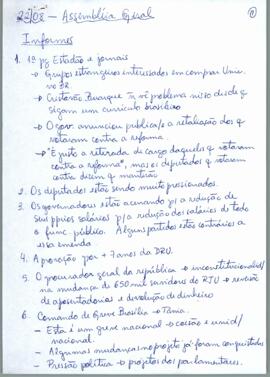 22/08 - Assembléia Geral
Informes
1. 1ª pg Estadão e jornais
→ Grupos estrangeiros interessados em comprar Univ.
no BR
→ Cristovão Buarque ñ vê problema nisso desde q
sigam um currículo brasileiro
→ O gov. anunciou publica/e a retaliação dos q
votaram contra a reforma.
→ "É justo a retirada de cargo daqueles q votaram
contra a reforma", mas os deputados q votaram
contra dizem q manterão
2. Os deputados estão sendo muito pressionados.
3. Os governadores estão acenando p/ a redução de
seus ppios salários p/ a redução dos salários de todo
o func. público. Alguns partidos estão contrários a
essa emenda
4. A provação por + 7 anos da DRU.
5. O procurador geral da república → inconstitucionalid/
na mudança de 650 mil servidores do RJU → revisão
de aposentadorias e devolução de dinheiro
6. Comando de Greve Brasília → Tânia.
- Esta é um greve nacional → coesão e unid/
nacional.
- Algumas mudanças no projeto já foram conquistadas
- Pressão política → projetos dos parlamentares.